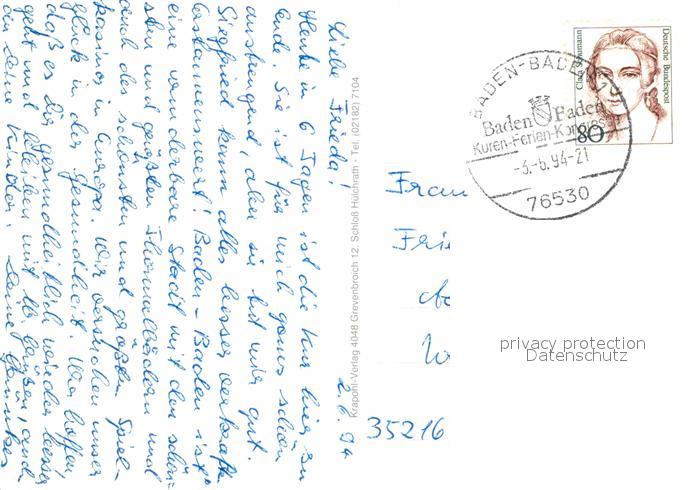 2.6.94
Liebe Frieda!
Heute in 6 Tagen ist die Kur hier zu
Ende. Sie ist für mich ganz schön
anstrengend, aber sie tut mir gut.
Siegfried kann alles besser verkraften.
Baden-Baden ist
eine wunderbare Stadt mit den schön-
sten und größten Thermalbädern und
auch das schönsten und größten Spiel-
kasino in Europa. Wir versuchen unser
Glück in der Gesundheit. Wir hoffen,
daß es Dir gesundheitlich wieder besser
geht und bleiben mit lb. Grüßen, auch
an Deine Kinder. Deine
Krapohl-Verlag 4048 Grevenbroich 12, Schloß Hülchrath - Tel. (02182) 7104
Clara Schumann
Deutsche Bundespost
80
BADEN-BADEN
Baden Baden
Kuren-Ferien-Kongresse
-3.-6.94-21
76530
Frau
35216
privacy protection
Datenschutz